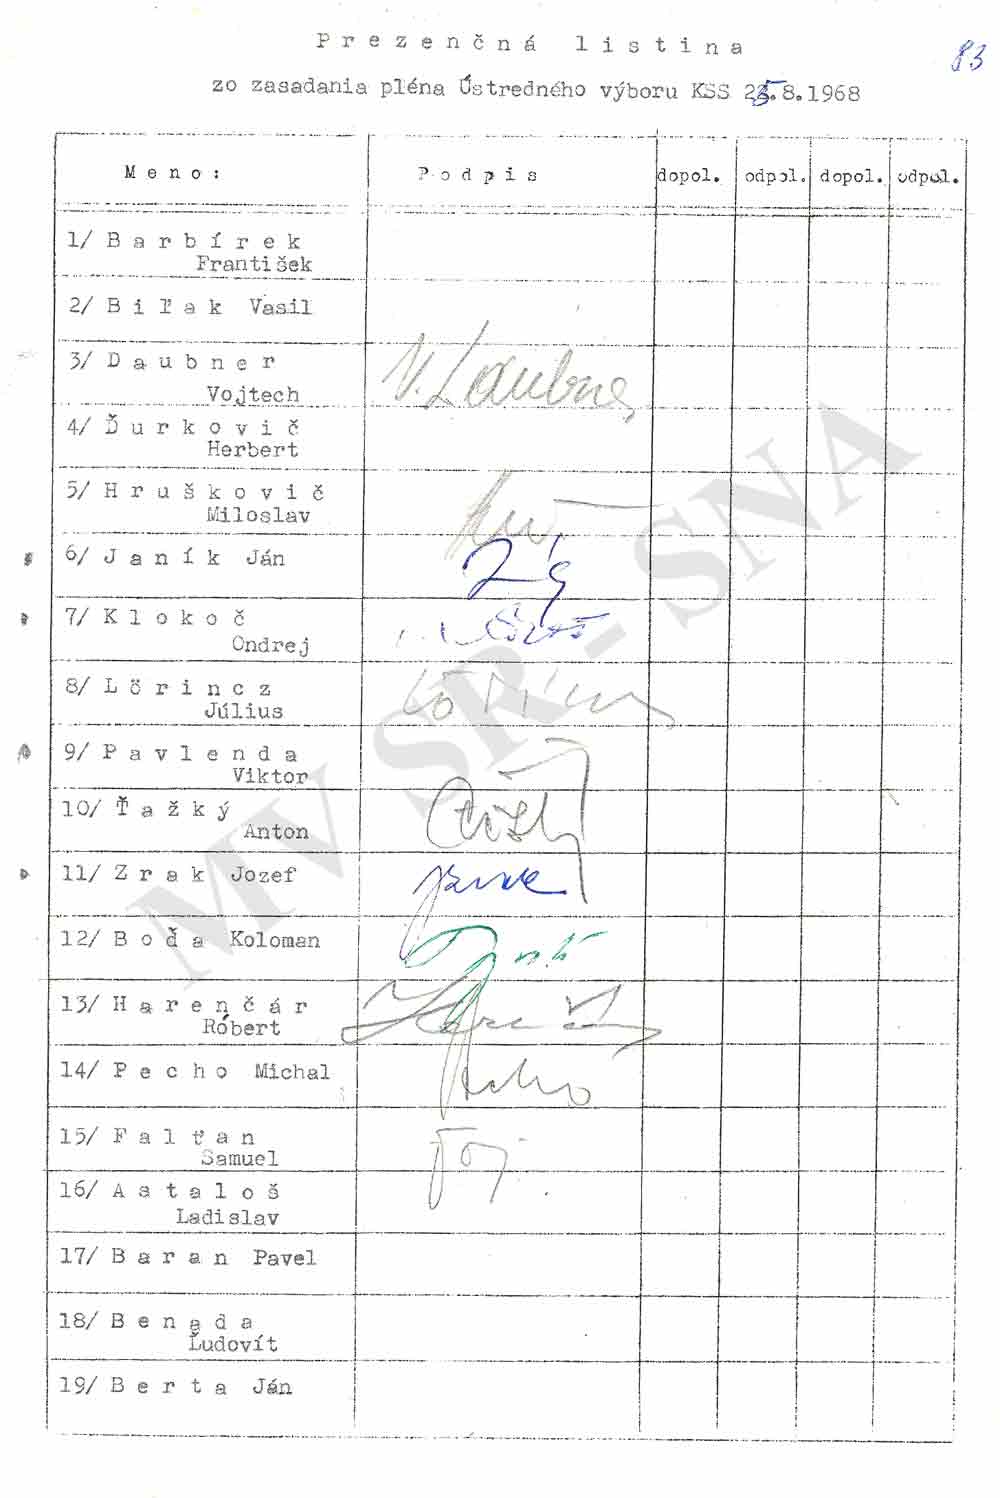 Prezenčná listina
83
zo zasadania pléna Ústredného výboru KSS 25.8.1968
Meno: Podpis dopol. odpol. dopol. odpol.
1/ Barbírek
František
2/ Biľak Vasil
3/ Daubner V. Daubner
Vojtech
4/ Ďurkovič
Herbert
5/ Hruškovič
Miloslav
6/ Janík Ján
7/ Klokoč
Ondrej
8/ Lörincz Lörincz
Július
9/ Pavlenda
Viktor
10/ Ťažký
Anton
11/ Zrak Jozef
12/ Boďa Koloman
13/ Harenčár
Róbert
14/ Pecho Michal Pecho
15/ Falťan
Samuel
16/ Astaloš
Ladislav
17/ Baran Pavel
18/ Benada
Ľudovít
19/ Berta Ján
MV SR - SNA